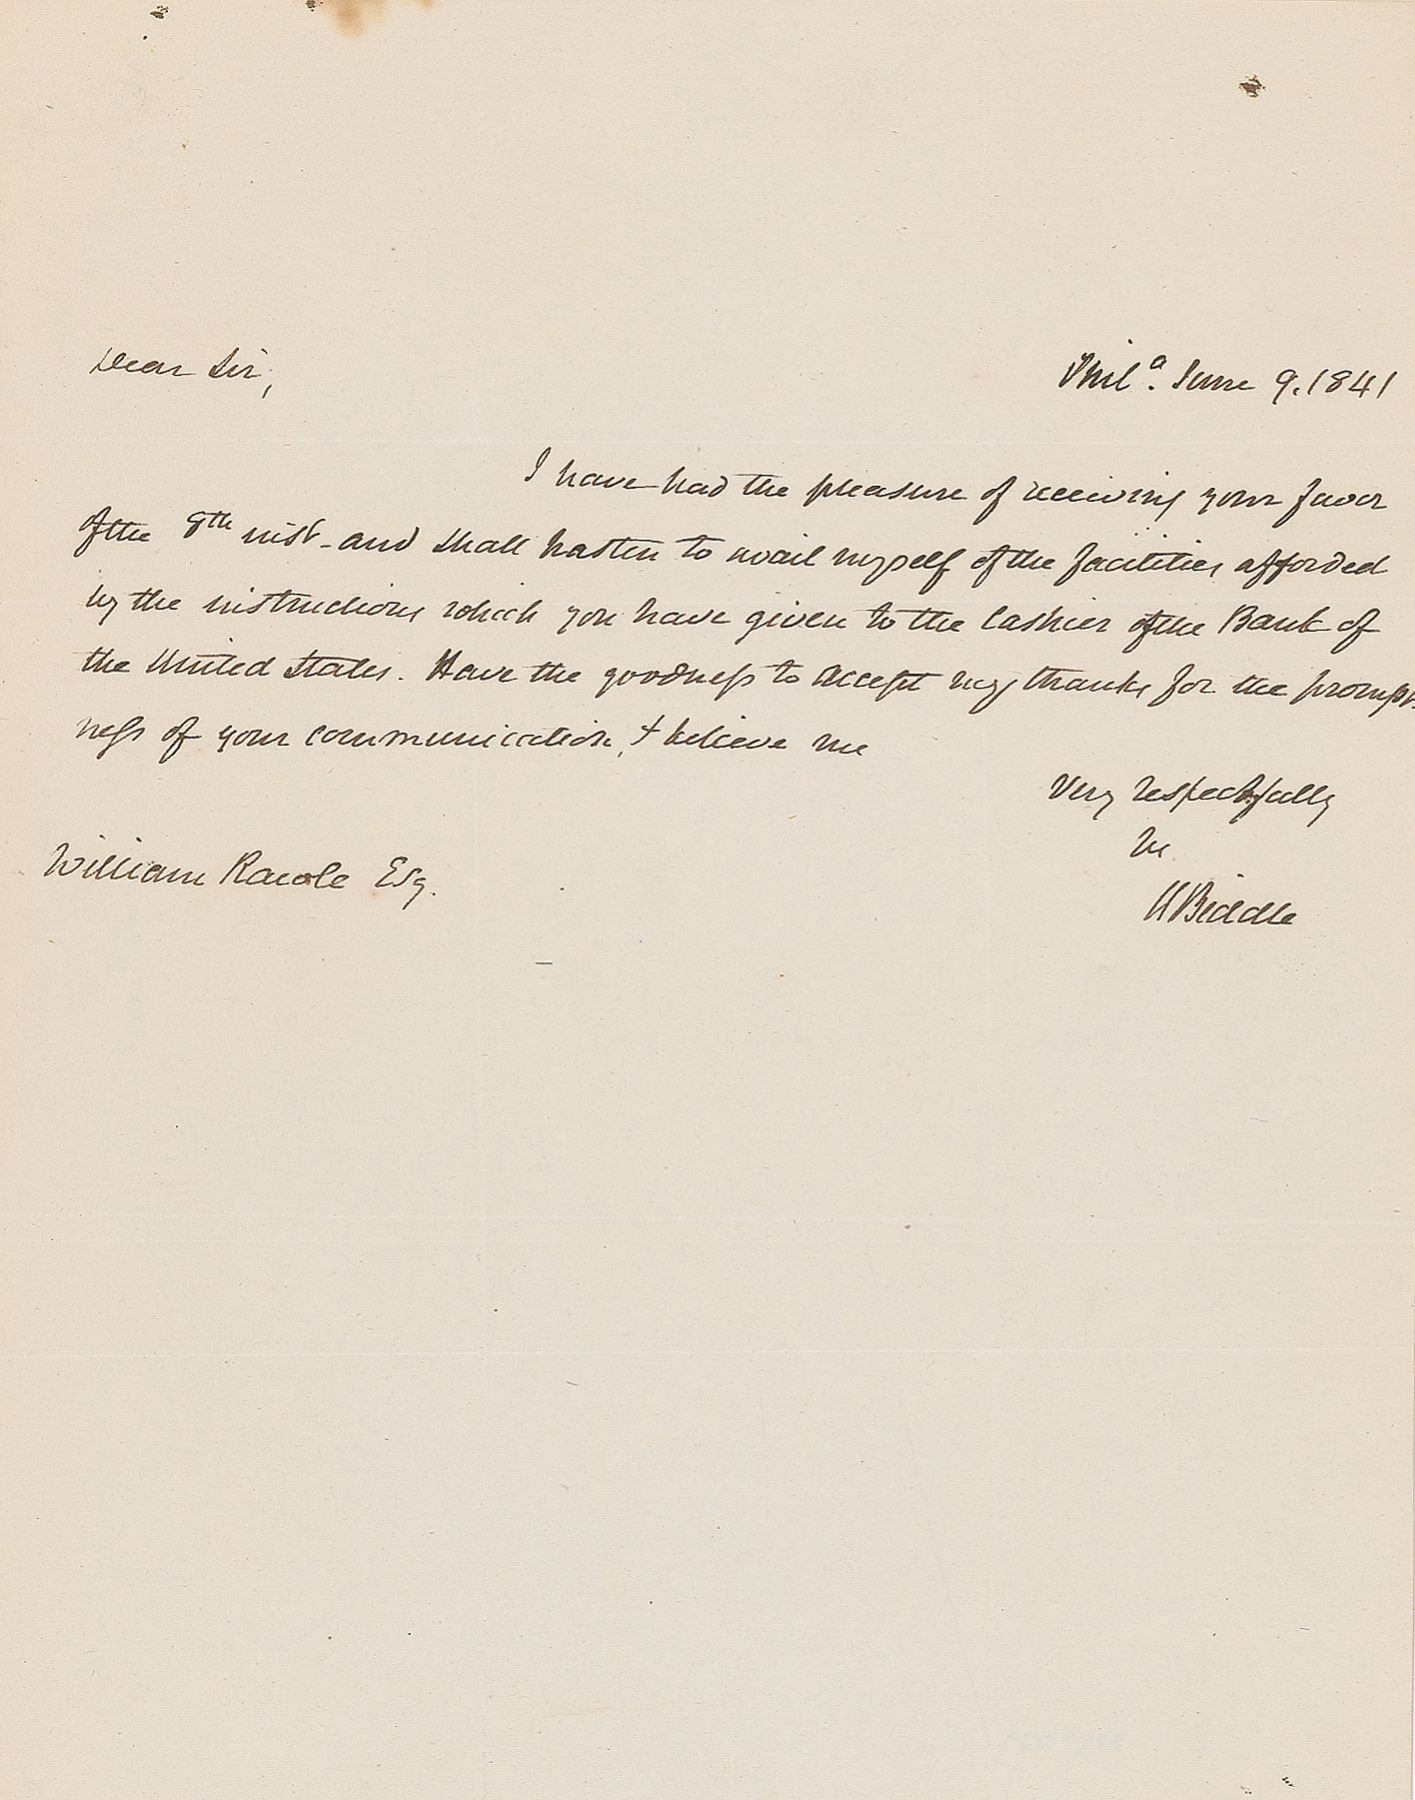 Dear Sir,
Phil.ª June 9. 1841
I have had the pleasure of receiving your favor
of the 8th inst - and shall hasten to avail myself of the facilities afforded
by the instructions which you have given to the Cashier of the Bank of
the United States. Have the goodness to accept my thanks for the prompt-
ness of your communication, & believe me
Very respectfully
Yrs
N Biddle
William Rawle Esq.